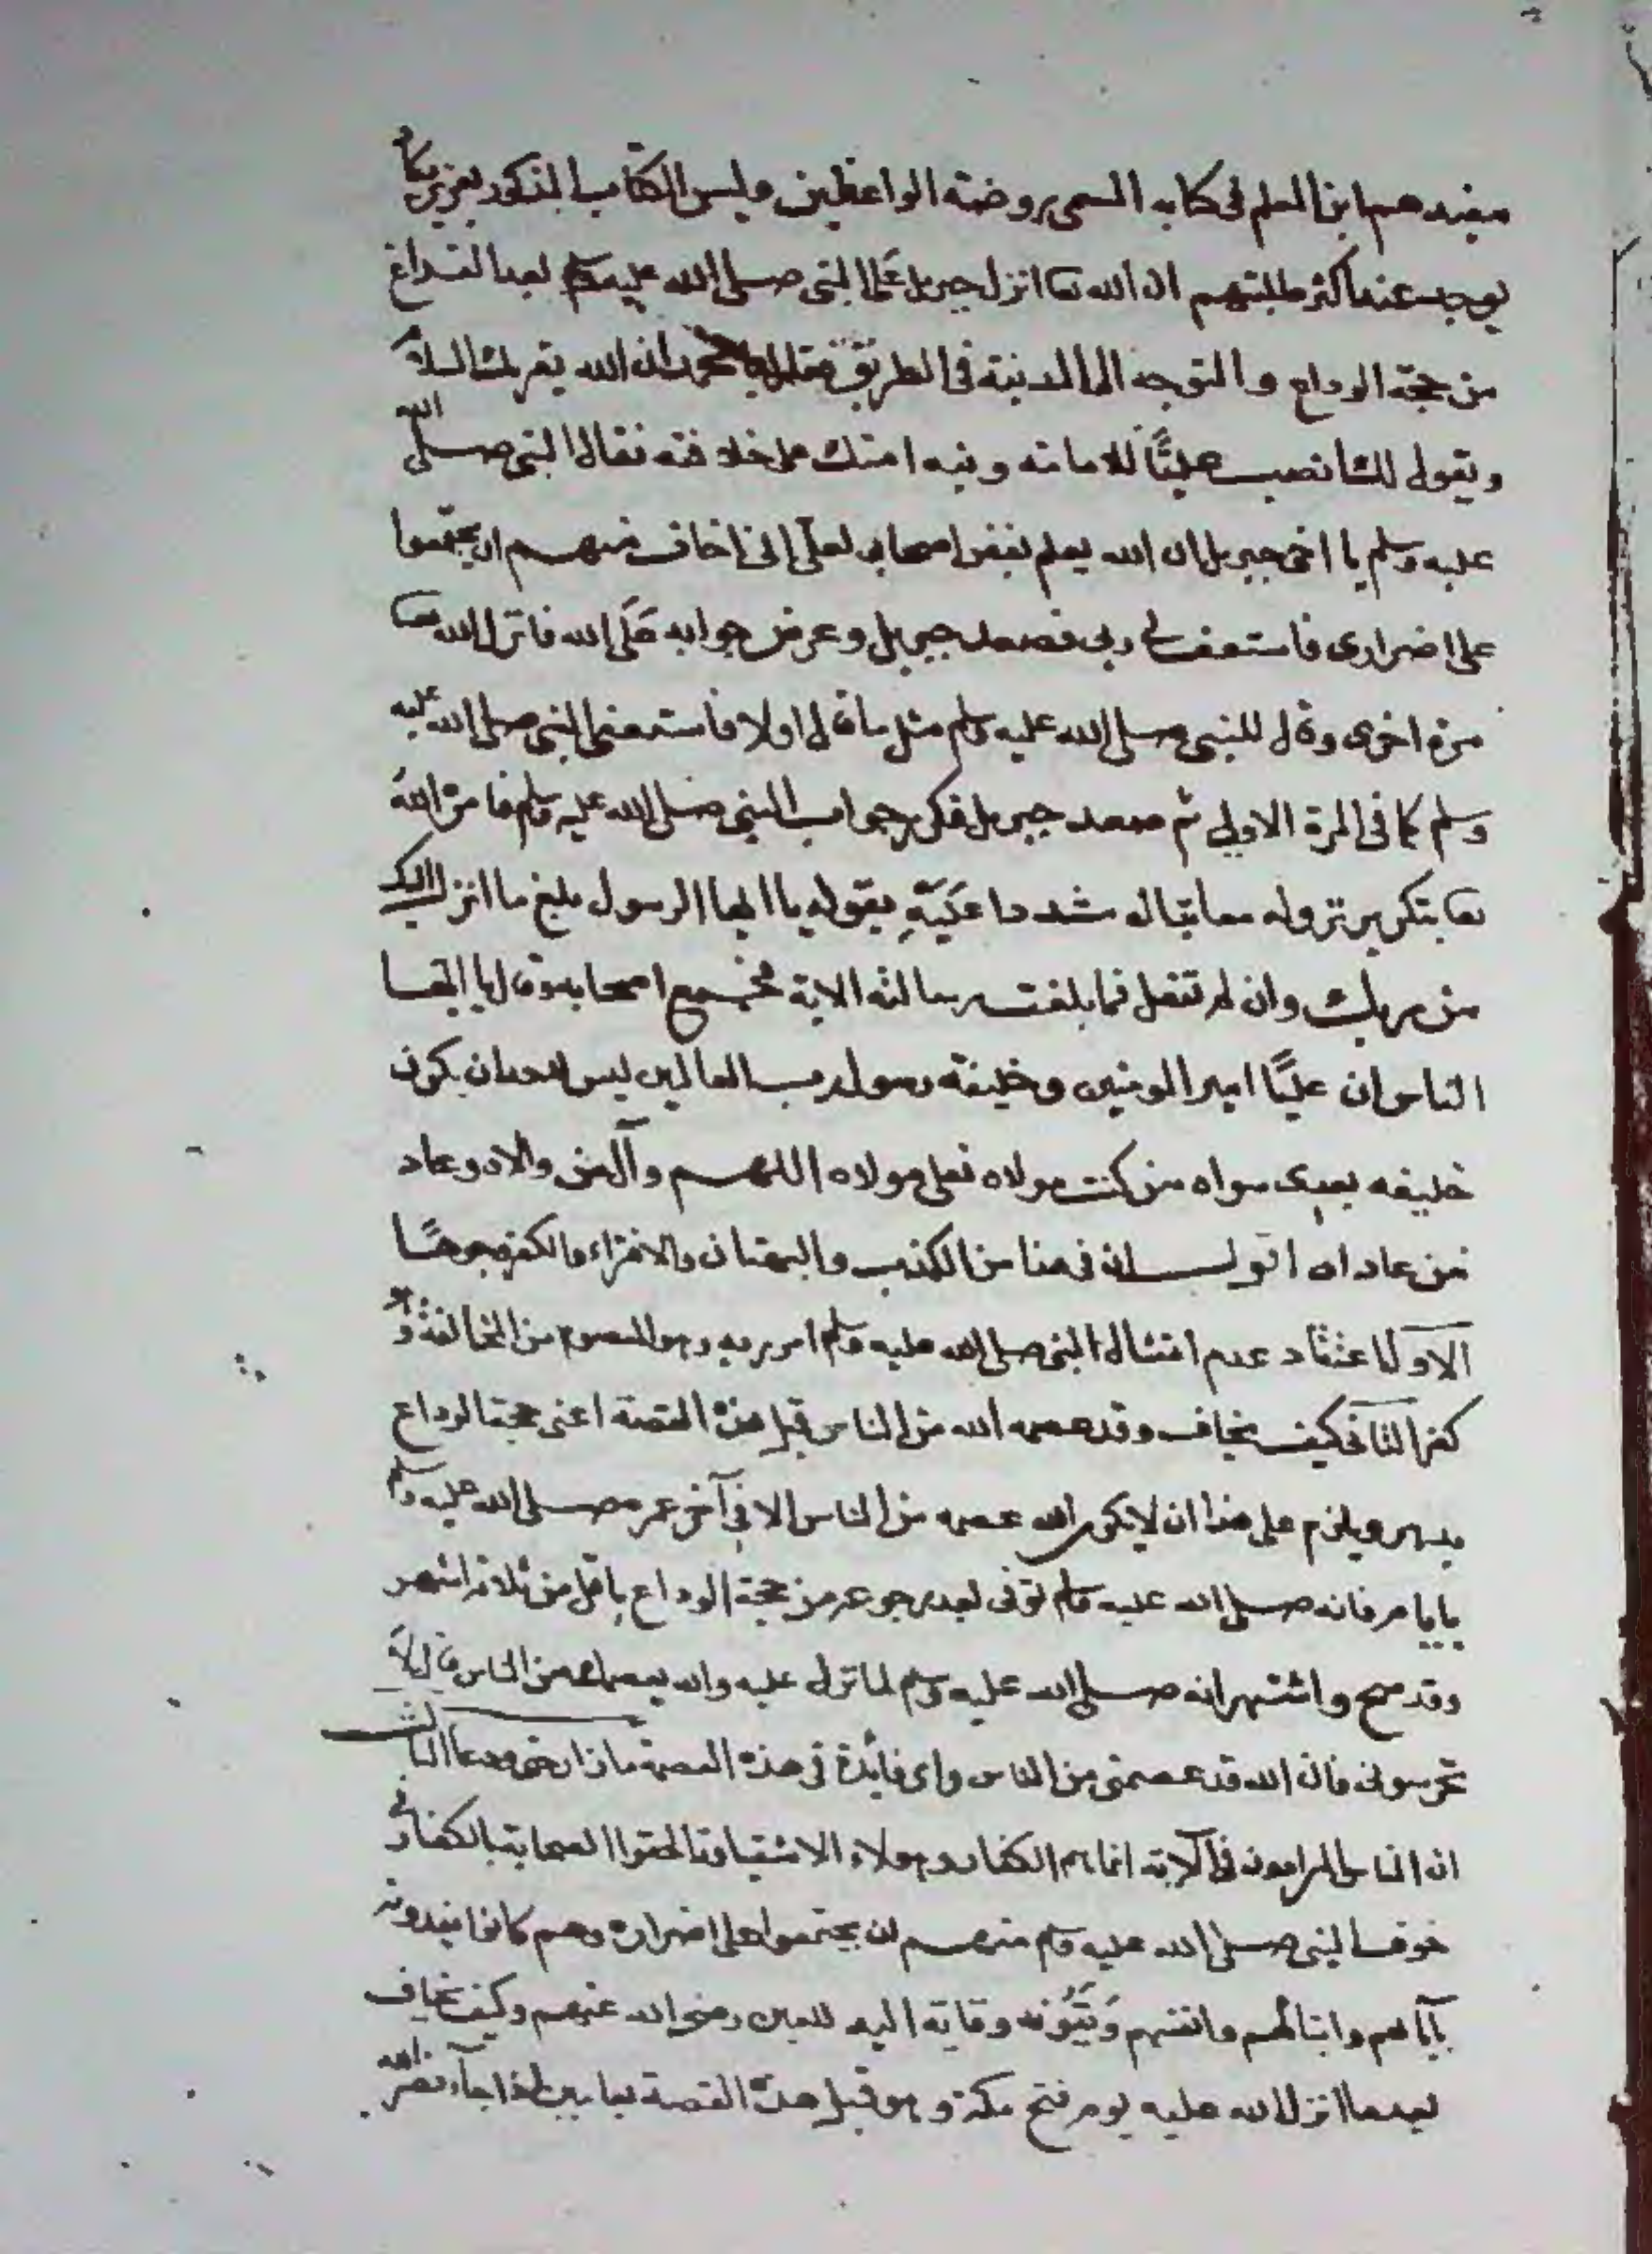 مفيدهم ابن المعلم فى كتابه المسمى بروضة الواعظين وليس الكتاب المذكور بعزيز بل
يوجد عند اكثر طلبتهم ان الله تعا انزل جبريل على النبى صلى الله عليه وسلم بعد الفراغ
من حجة الوداع والتوجه الى المدينة فى الطريق فقال يا محمد ان الله يقريك السلام
ويقول لك انصب عليًّا للامامة ونبه امتك على خلافته فقال النبى صلى الله
عليه وسلم يا اخى جبريل ان الله يعلم بغض اصحابى لعلى انى اخاف منهم ان يجتمعوا
على اضرارى فاستعف لى ربى فصعد جبريل وعرض جوابه على الله فانزل الله تعا
مرة اخرى وقال للنبى صلى الله عليه وسلم مثل ما قال اولا فاستعفى النبى صلى الله عليه
وسلم كما فى المرة الاولى ثم صعد جبريل فكرر جواب النبى صلى الله عليه وسلم فامره الله
تعا بتكرير نزوله معاتبا له مشددا عليه بقوله يا ايها الرسول بلغ ما انزل اليك
من ربك وان لم تفعل فما بلغت رسالته الاية فجمع اصحابه وقال يا ايها
الناس ان عليًّا امير المومنين وخليفة رسول رب العالمين ليس لاحد ان يكون
خليفه بعدى سواه من كنت مولاه فعلى مولاه اللهم وآل من والاه وعاد
من عاداه اقول ان فى هذا من الكذب والبهتان والافتراء والكفر وجوها
الاول اعتقاد عدم امتثال النبى صلى الله عليه وسلم امر ربه وهو المعصوم من المخالفة و
كفر الثانى كيف يخاف وقد عصمه الله من الناس قبل هذه القصة اعنى حجة الوداع
ويلزم على هذا ان لا يكون الله عصمه من الناس الا فى آخر عمره صلى الله عليه وسلم
بايام فانه صلى الله عليه وسلم توفى بعد رجوعه من حجة الوداع باقل من ثلاثة اشهر
وقد صح واشتهر انه صلى الله عليه وسلم لما نزل عليه والله يعصمك من الناس قال لا
تحرسونى فان الله قد عصمنى من الناس واى فائدة فى هذه العصمة
ان الناس المرادون فى الآية انما هم الكفار وهولاء الاشقيا الحقوا الصحابة بالكفار فى
خوف النبى صلى الله عليه وسلم منهم ان يجتمعوا على اضراره وهم كانوا يفدونه
بآبائهم وابنائهم وانفسهم ويقونه وقاية اليد للعين رضى الله عنهم وكيف يخاف
بعد ما انزل الله عليه يوم فتح مكة وهو قبل هذه القصة اذا جآء نصر الله